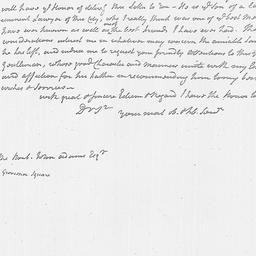 will have ye Honor of delivg this letter to you - He is ye Son of a late
eminent Lawyer of this City, who I really think was one of ye best Men I
have ever known as well as the best friends I have ever had. These
considerations interest me in whatever may concern the amiable
he has left, and induce me to request your friendly attentions to this
gentleman, whose good character and manners unite with my
and affection for his father in recommending him to my best
wishes &
with great & sincere Esteem & regard I have the Honor to
Dr Sir
your most ob. & hble Servt
The Honb. John Adams Esqr
Grosvenor Square